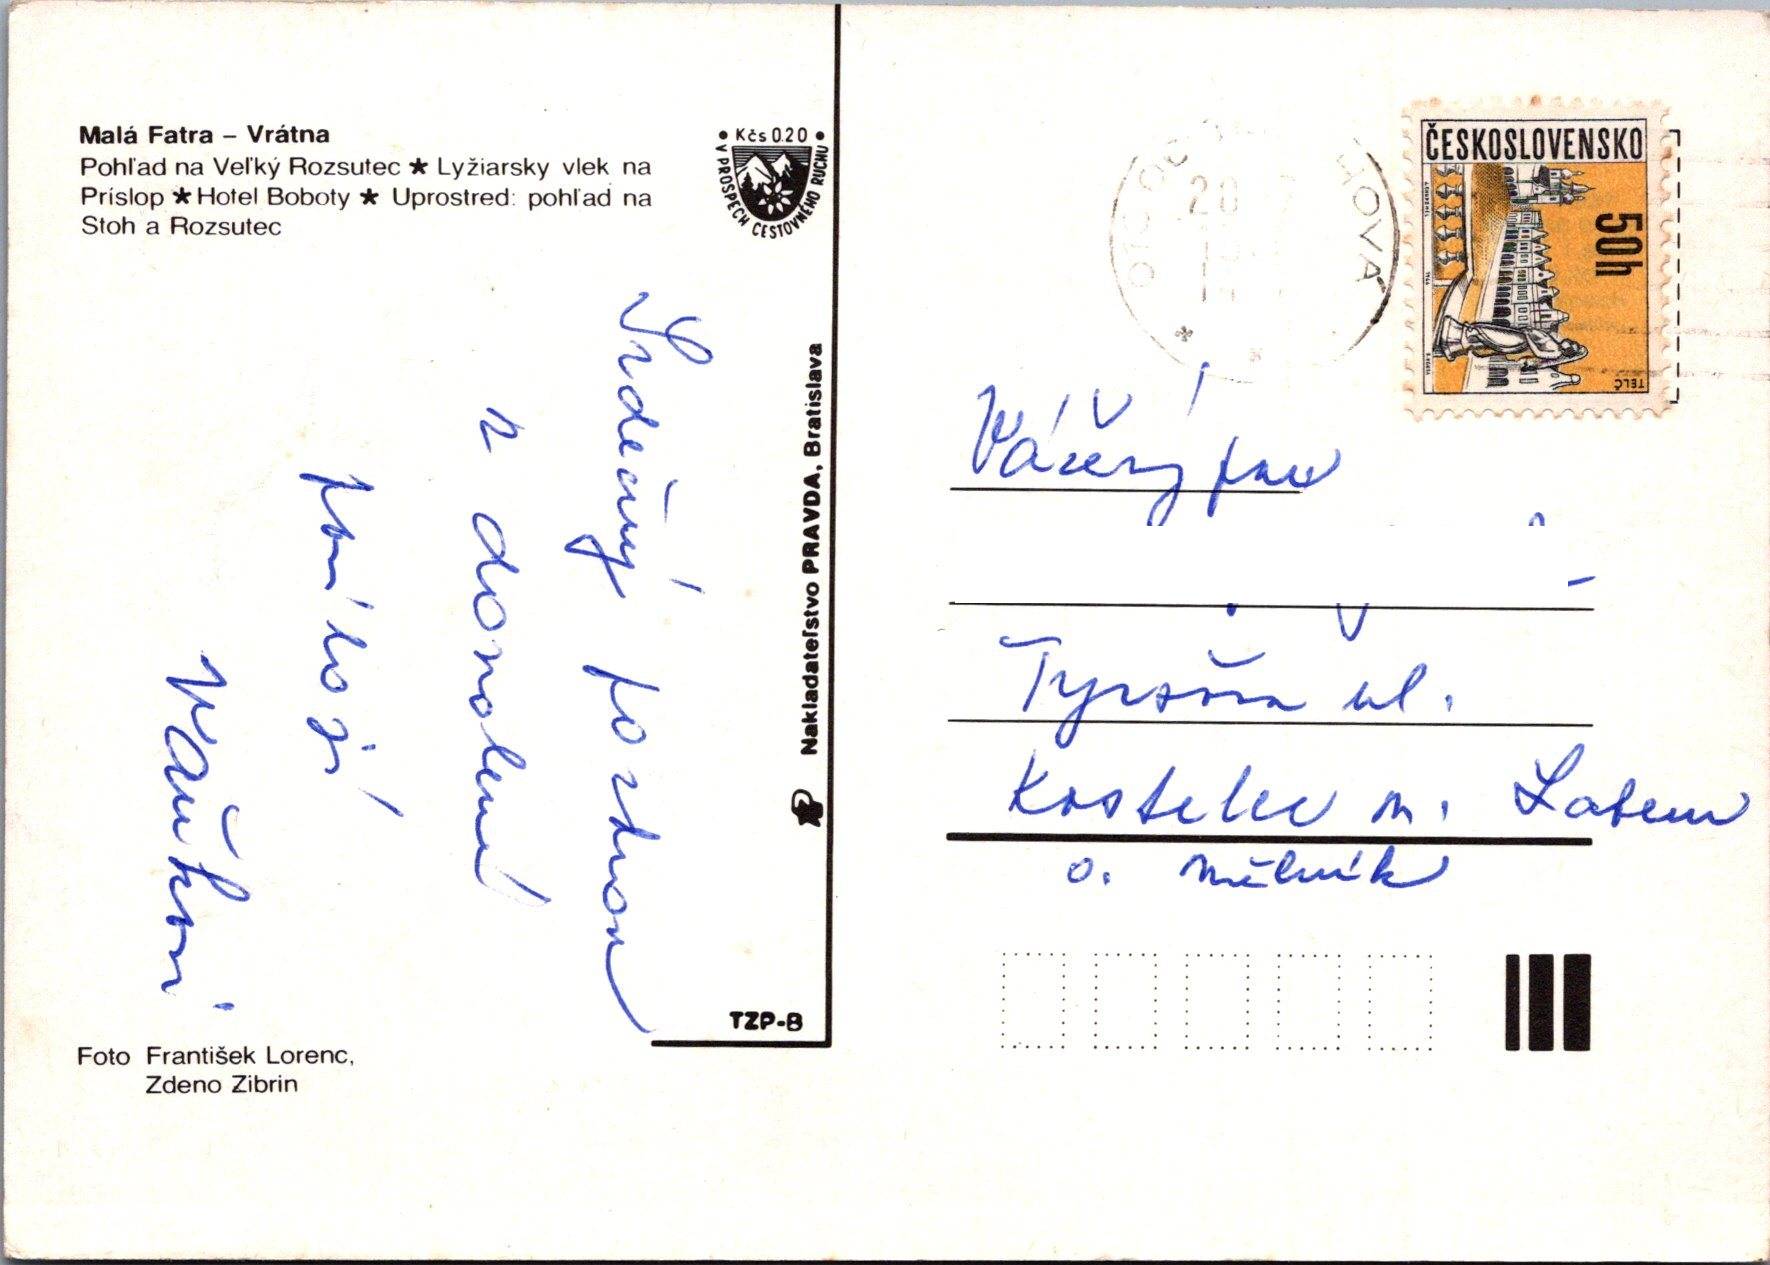 Malá Fatra – Vrátna
Pohľad na Veľký Rozsutec ★ Lyžiarsky vlek na
Príslop ★ Hotel Boboty ★ Uprostred: pohľad na
Stoh a Rozsutec
• Kčs 0.20 •
V PROSPECH CESTOVNÉHO RUCHU
Srdečný pozdrav
z dovolené
posílají
Vaňkovi
Nakladateľstvo PRAVDA, Bratislava
TZP-B
Foto František Lorenc,
Zdeno Zibrin
ČESKOSLOVENSKO
50h
TELČ
Vážený pan
Tyršova ul.
Kostelec n. Labem
o. Mělník